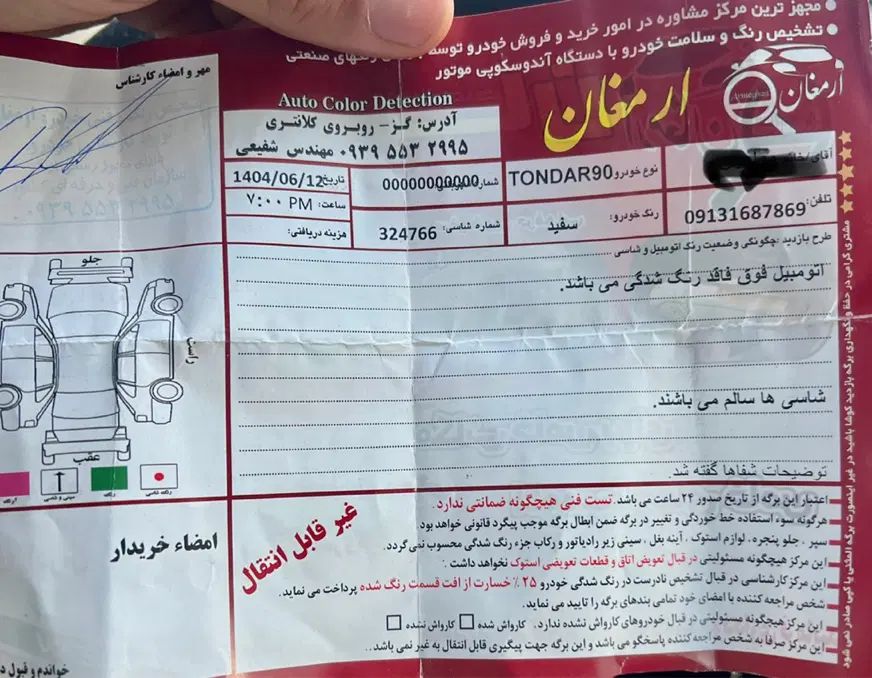 مجهز ترین مرکز مشاوره در امور خرید و فروش خودرو توسط
تشخیص رنگ و سلامت خودرو با دستگاه آندوسکوپی موتور
رنگهای صنعتی
ارمغان
ارمغان
Armeghan
Auto Color Detection
آدرس: گز- روبروی کلانتری
۰۹۳۹ ۵۵۳ ۲۹۹۵ مهندس شفیعی
مهر و امضاء کارشناس
۰۹۳۹ ۵۵۳ ۲۹۹۵
آقای/خانم
نوع خودرو: TONDAR90
شماره 00000000000
تاریخ: 1404/06/12
تلفن: 09131687869
رنگ خودرو: سفید
شماره شاسی: 324766
ساعت: ۷:۰۰ PM
هزینه دریافتی:
طرح بازدید: چگونگی وضعیت رنگ اتومبیل و شاسی
اتومبیل فوق فاقد رنگ شدگی می باشد.
شاسی ها سالم می باشند.
توضیحات شفاها گفته شد.
جلو
راست
عقب
رنگ شاسی
رنگ
مشتری گرامی در حفظ و نگهداری برگه بازدید کوشا باشید در غیر اینصورت برگه المثنی یا کپی صادر نمی شود
اعتبار این برگه از تاریخ صدور ۲۴ ساعت می باشد. تست فنی هیچگونه ضمانتی ندارد.
هرگونه سوء استفاده خط خوردگی و تغییر در برگه ضمن ابطال برگه موجب پیگرد قانونی خواهد بود
سپر . جلو پنجره. لوازم استوک . آینه بغل . سینی زیر رادیاتور و رکاب جزء رنگ شدگی محسوب نمی گردد.
این مرکز هیچگونه مسئولیتی در قبال تعویض اتاق و قطعات تعویضی استوک نخواهد داشت.
این مرکز کارشناسی در قبال تشخیص نادرست در رنگ شدگی خودرو ۲۵ ٪ خسارت از افت قسمت رنگ شده پرداخت می نماید.
شخص مراجعه کننده با امضای خود تمامی بندهای برگه را تایید می نماید.
این مرکز هیچگونه مسئولیتی در قبال خودروهای کارواش نشده ندارد. کارواش شده کارواش نشده
این مرکز صرفا به شخص مراجعه کننده پاسخگو می باشد و این برگه جهت پیگیری قابل انتقال به غیر نمی باشد..
غیر قابل انتقال
امضاء خریدار
خواندم و قبول